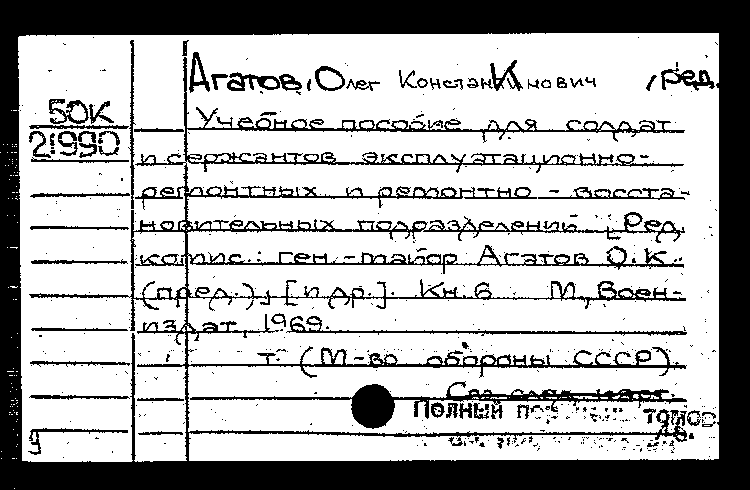 Агатов, Олег Константинович, ред.
50К
21990
Учебное пособие для солдат
и сержантов эксплуатационно-
ремонтных и ремонтно-восста-
новительных подразделений [Ред.
комис.: ген.-майор Агатов О.К.
(пред.), [и др.]. Кн. 6 М., Воен-
издат, 1969.
т. (М-во обороны СССР).
См. след. карт.
Полный томов
9